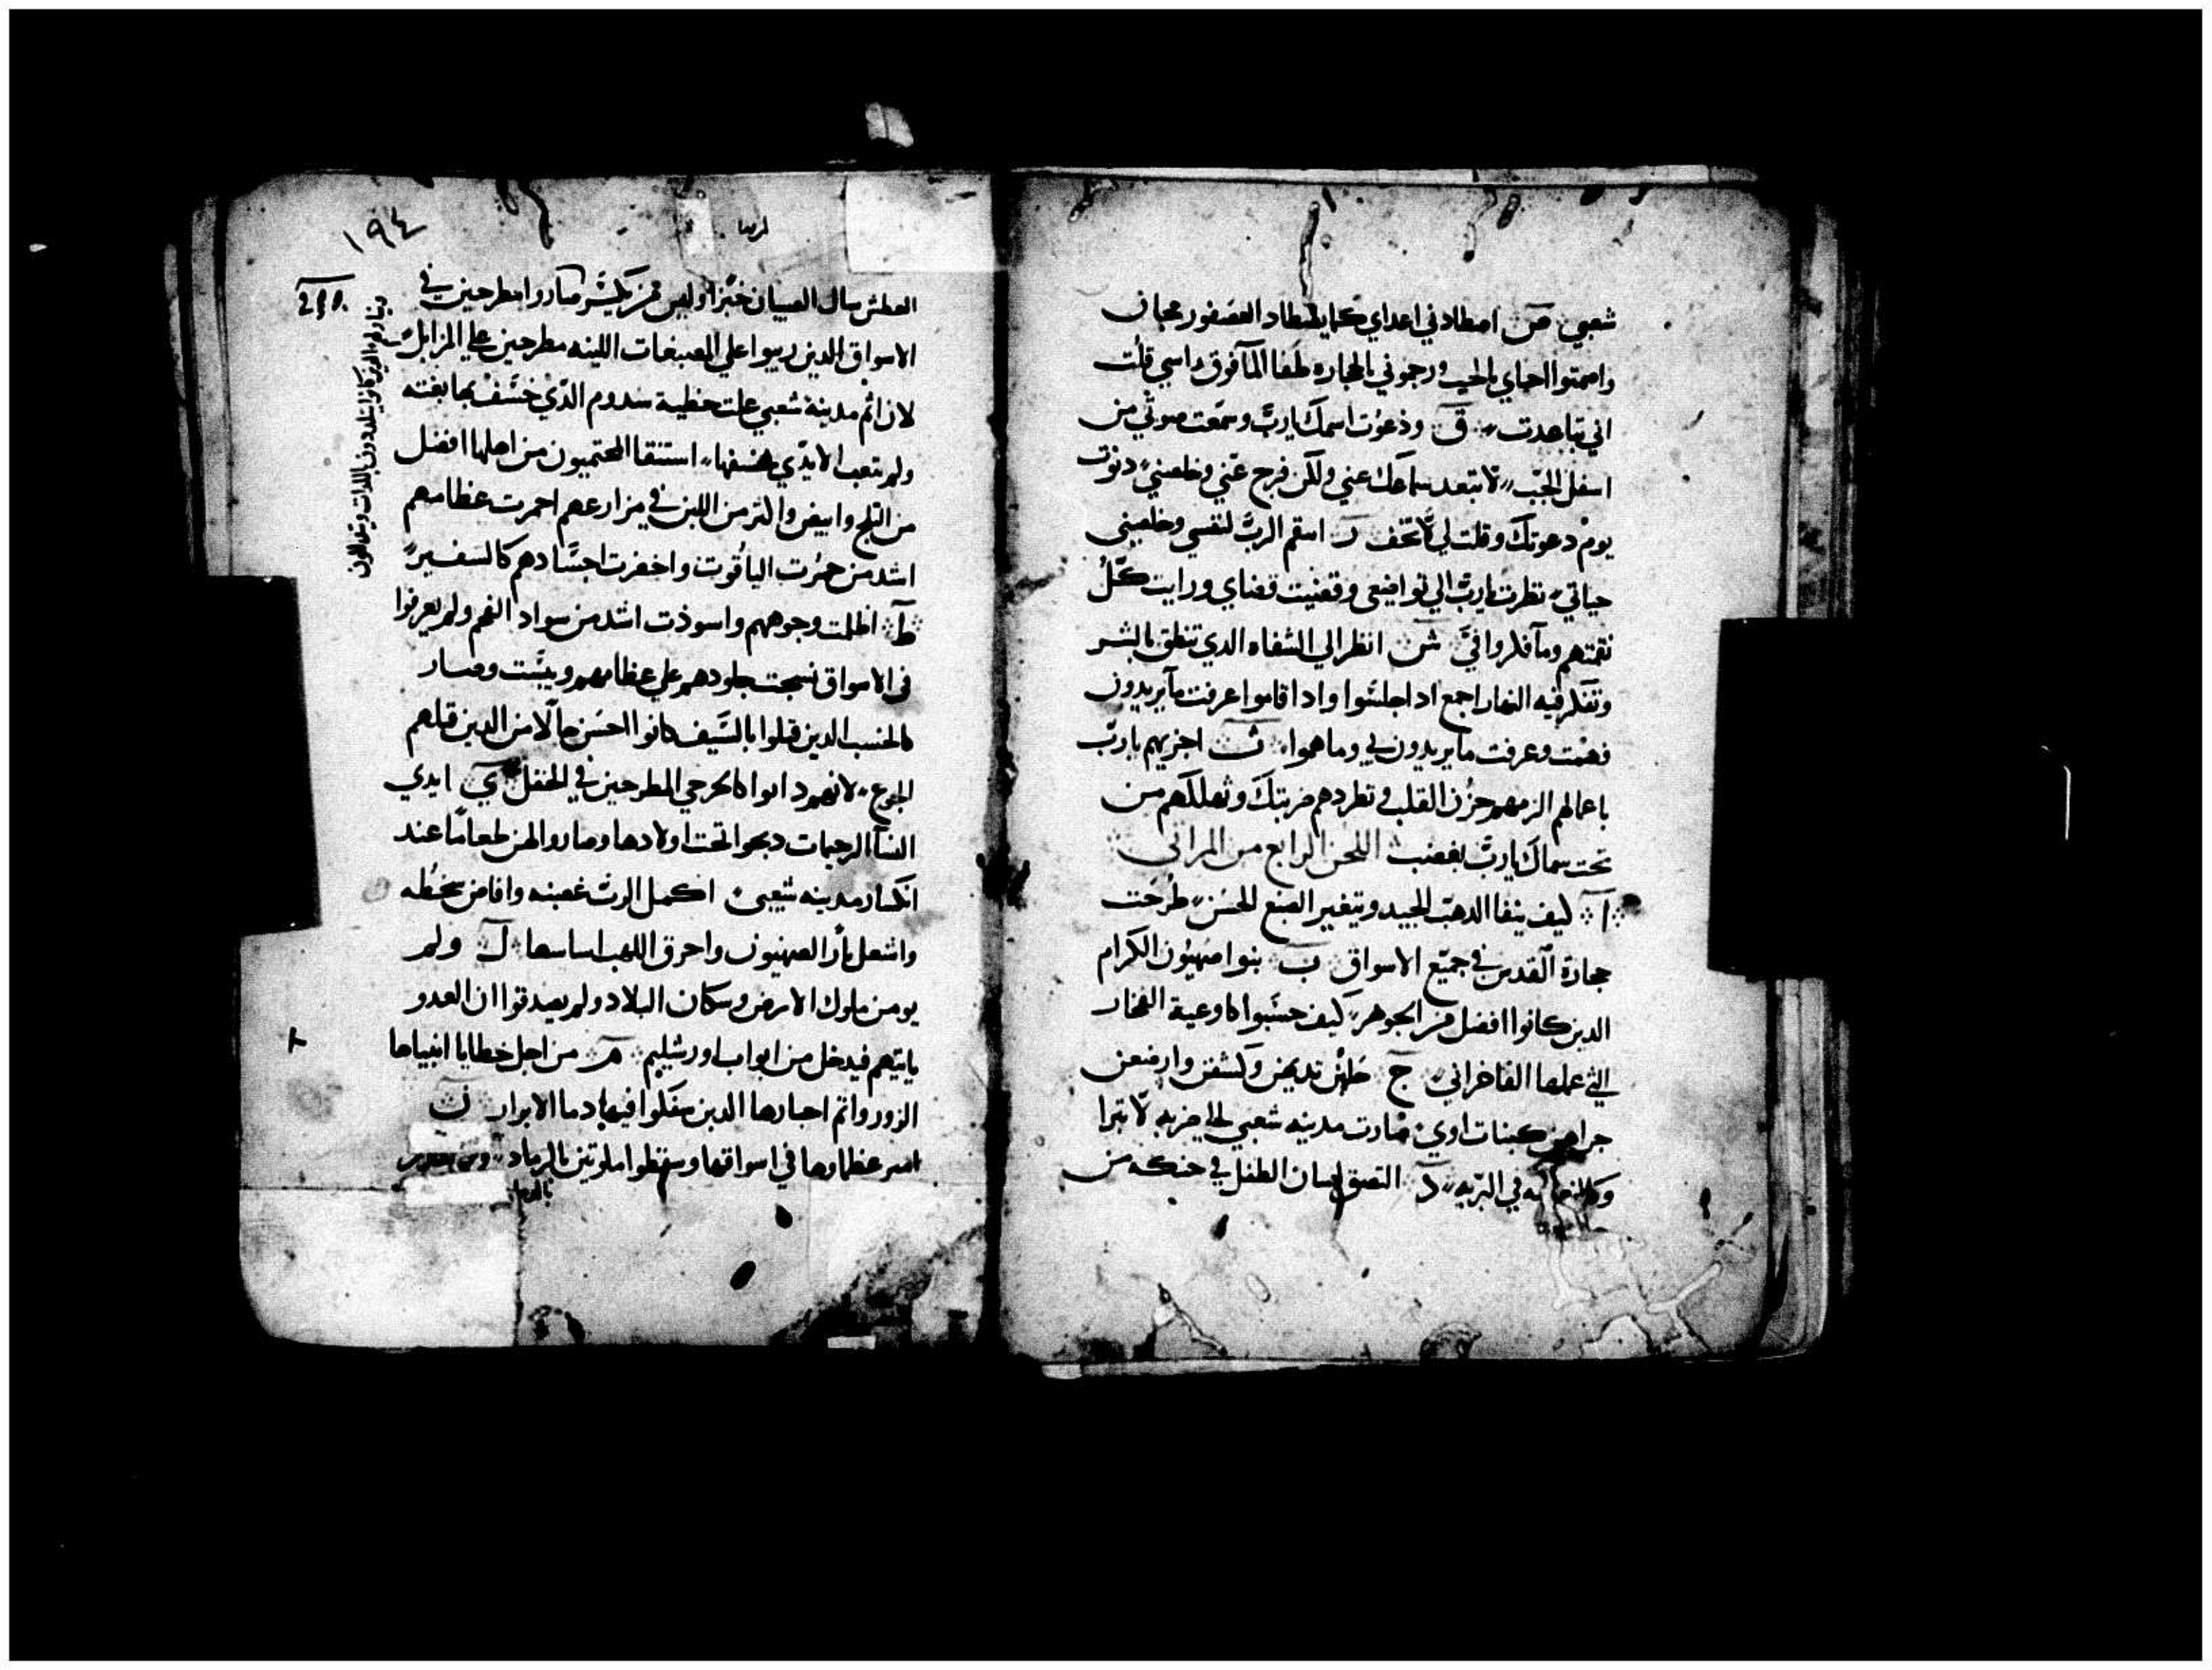 شعبي ص اصطادني اعداي كما يصطاد العصفور مجان
واصمتوا احياي بالجب ورجموني بالحجاره طفا المآ فوق راسي قلت
اني تباعدت ق ودعوت اسمك يارب وسمعت صوتي من
اسفل الجب لا تبعد سماعك عني ولكن فرج عني وخلصني دنوت
يوم دعوتك وقلت لي لا تخف ر اسقم الرب لنفسي وخلصني
حياتي نظرت يارب الي تواضعي وقضيت قضاي ورايت كل
نقمتهم وما فكروا في ش انظر الي الشفاه الدي تنطق بالشر
وتفكر فيه النهار اجمع ادا جلسوا وادا قاموا عرفت ما يريدون
فهمت وعرفت ما يريدون بي وما هموا ت اجزيهم يارب
باعمالهم الزمهم حزن القلب وتطردهم ضربتك وتهلكهم من
تحت سماك يارب بغضب اللحن الرابع من المراثي
ا كيف ينفا الدهب الجيد ويتغير الصبغ الحسن طرحت
حجارة القدس في جميع الاسواق ب بنوا صهيون الكرام
الدين كانوا افضل من الجوهر كيف حسبوا كاوعية الفخار
التي عملها الفاخراني ج حلين تديهن وكشفن وارضعن
جراهن كبنات اوي صارت مدينه شعبي لخاضربه لا تبرا
في البريه د التصق لسان الطفل في حنكه من
١٩٤
العطش سال الصبيان خبزا وليس من يكسر صاروا مطرحين في
الاسواق الدين ربيوا علي الصبغات اللينه مطرحين علي المزابل
لان اثم مدينة شعبي علت خطية سدوم الذي خسف بها بغته
ولم تتعب الايدي بخسفها استنقا المحتميون من اهلها افضل
من التلج وابيض واكتر من اللبن في مزارعهم احمرت عظامهم
اشد من حمرت الياقوت واخضرت اجسادهم كالسفير
ط اظلمت وجوههم واسودت اشد من سواد الفحم ولم يعرفوا
في الاسواق نسجت جلودهم علي عظامهم ويبست وصار
كالخشب الدين قتلوا بالسيف كانوا احسن حالا من الدين قتلهم
الجوع لانهم دابوا كالجرحي المطرحين في الحقل ي ايدي
النسا الرحيمات دبحوا تحت اولادها وصاروا لهن طعاما عند
انكسار مدينه شعبي اكمل الرب غضبه وافاض سخطه
واشعل نارا لصهيون واحرق اللهب اساسها ل ولم
يومن ملوك الارض وسكان البلاد ولم يصدقوا ان العدو
ياتيهم فيدخل من ابواب اورشليم م من اجل خطايا انبياها
الزور واثم احبارها الدين سفكوا فيها دما الابرار ن
عظماوها في اسواقها وسقطوا ملوتين بالرماد